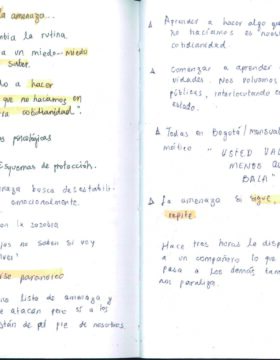 la amenaza...
mbia la rutina
a un miedo - miedo
saber.
do a hacer
que no hacíamos en
ra cotidianidad".
as psicológicas
Esquemas de protección.
naza busca desestabili-
emocionalmente.
on la zozobra
jos no saben si voy
lver"
rse paranoico
no listo de amenaza y
e atacan pero sí a los
stán de al pie de nosotros
Aprender a hacer algo que
no hacíamos en nues
cotidianidad
Comenzar a aprender
vidades. Nos volvemos
públicos, interlocutando co
estado.
Todas en Bogotá / mensual
mático
"USTED VALE
MENOS QU
BALA"
La amenaza si sigue,
repite
Hace tres horas le disp
a un compañero lo que
pasa a los demás tam
nos paraliza.